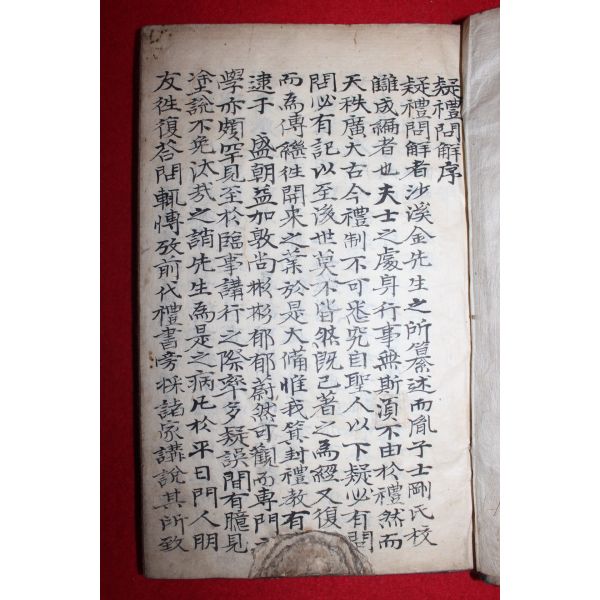 疑禮問解序
疑禮問解者沙溪金先生之所纂述而胤子士剛氏校
讎成編者也夫士之處身行事無斯須不由於禮然而
天秩廣大古今禮制不可悉究自聖人以下疑必有問
問必有記以至後世莫不皆然旣已著之為經又復
而為傳繼徃開來之業於是大備惟我箕封禮教有
逮于 盛朝益加敦尚彬彬郁郁蔚然可觀而專門之
學亦頗罕見至於臨事講行之際率多疑誤間有臆見
塗說不免汰哉之誚先生為是之病凡於平日門人朋
友徃復答問輒博攷前代禮書旁採諸家講說其所致